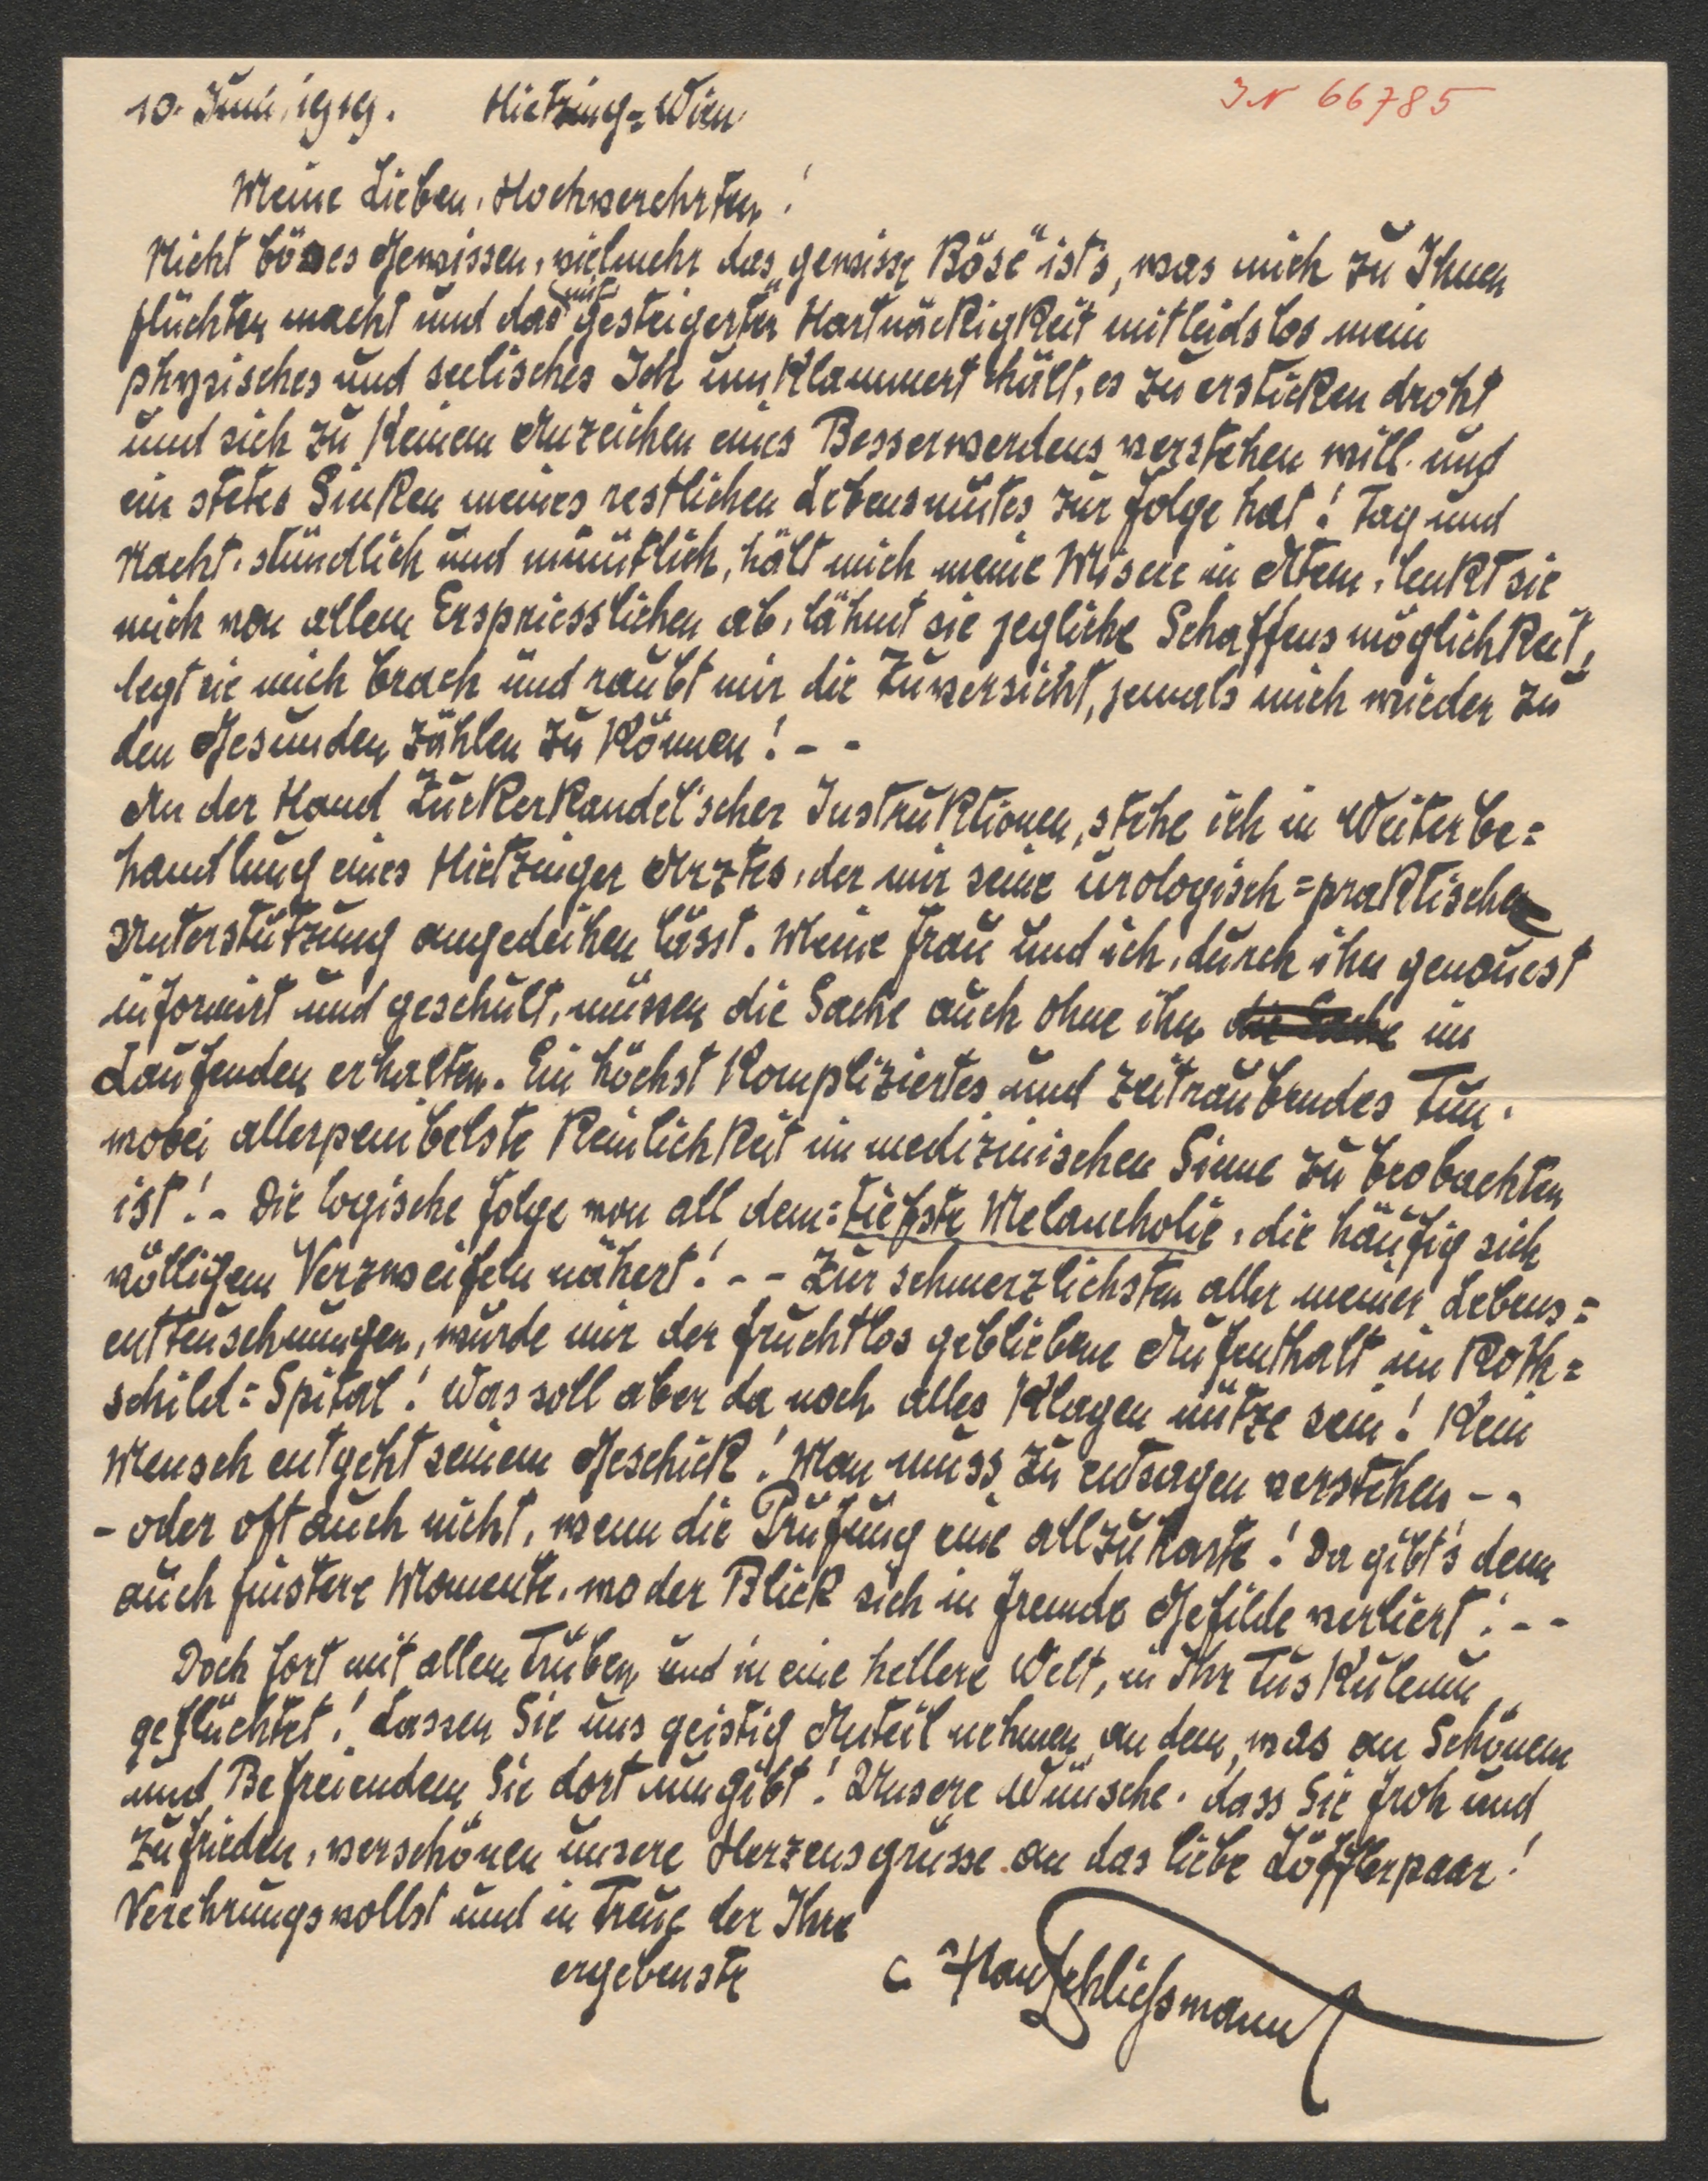 10. Juni, 1919. Hietzing=Wien
J.N 66785
Meine Lieben, Hochverehrten!
Nicht böses Gewissen, vielmehr das „gewisse Böse“ ist's, was mich zu Ihnen
flüchten macht und das mit gesteigerter Hartnäckigkeit mitleidslos mein
physisches und seelisches Ich umklammert hält, es zu ersticken droht
und sich zu keinem Anzeichen eines Besserwerdens verstehen will und
ein stetes Sinken meines restlichen Lebensmutes zur Folge hat! Tag und
Nacht, stündlich und minütlich, hält mich meine Misere in Atem, lenkt sie
mich von allem Erspriesslichen ab, lähmt sie jegliche Schaffensmöglichkeit,
legt sie mich brach und raubt mir die Zuversicht, jemals mich wieder zu
den Gesunden zählen zu können! - -
An der Hand Zuckerkandel'scher Instruktionen, stehe ich in Weiterbe=
handlung eines Hietzinger Arztes, der mir seine urologisch=praktische
Unterstützung angedeihen lässt. Meine Frau und ich, durch ihn genauest
informirt und geschult, müssen die Sache auch ohne ihn die Sache im
Laufenden erhalten. Ein höchst kompliziertes und zeitraubendes Tun,
wobei allerpenibelste Reinlichkeit im medizinischen Sinne zu beobachten
ist! - Die logische Folge von all dem: tiefste Melancholie, die häufig sich
völligem Verzweifeln nähert! - - Zur schmerzlichsten aller meiner Lebens=
enttäuschungen, wurde mir der fruchtlos gebliebene Aufenthalt im Roth=
schild=Spital! Was soll aber da noch alles Klagen nütze sein! Kein
Mensch entgeht seinem Geschick! Man muss zu entsagen verstehen - -
- oder oft auch nicht, wenn die Prüfung eine allzuharte! Da gibt's denn
auch finstere Momente, wo der Blick sich in fremde Gefilde verliert! - -
Doch fort mit allem Trüben und in eine hellere Welt, in Ihr Tuskulum
geflüchtet! Lassen Sie uns geistig Anteil nehmen an dem, was an Schönem
und Befreiendem Sie dort umgibt! Unsere Wünsche, dass Sie froh und
zufrieden, verschönen unsere Herzensgrüsse an das liebe Löfflerpaar!
Verehrungsvollst und in Treue der Ihre
ergebenste Hans Schliessmann